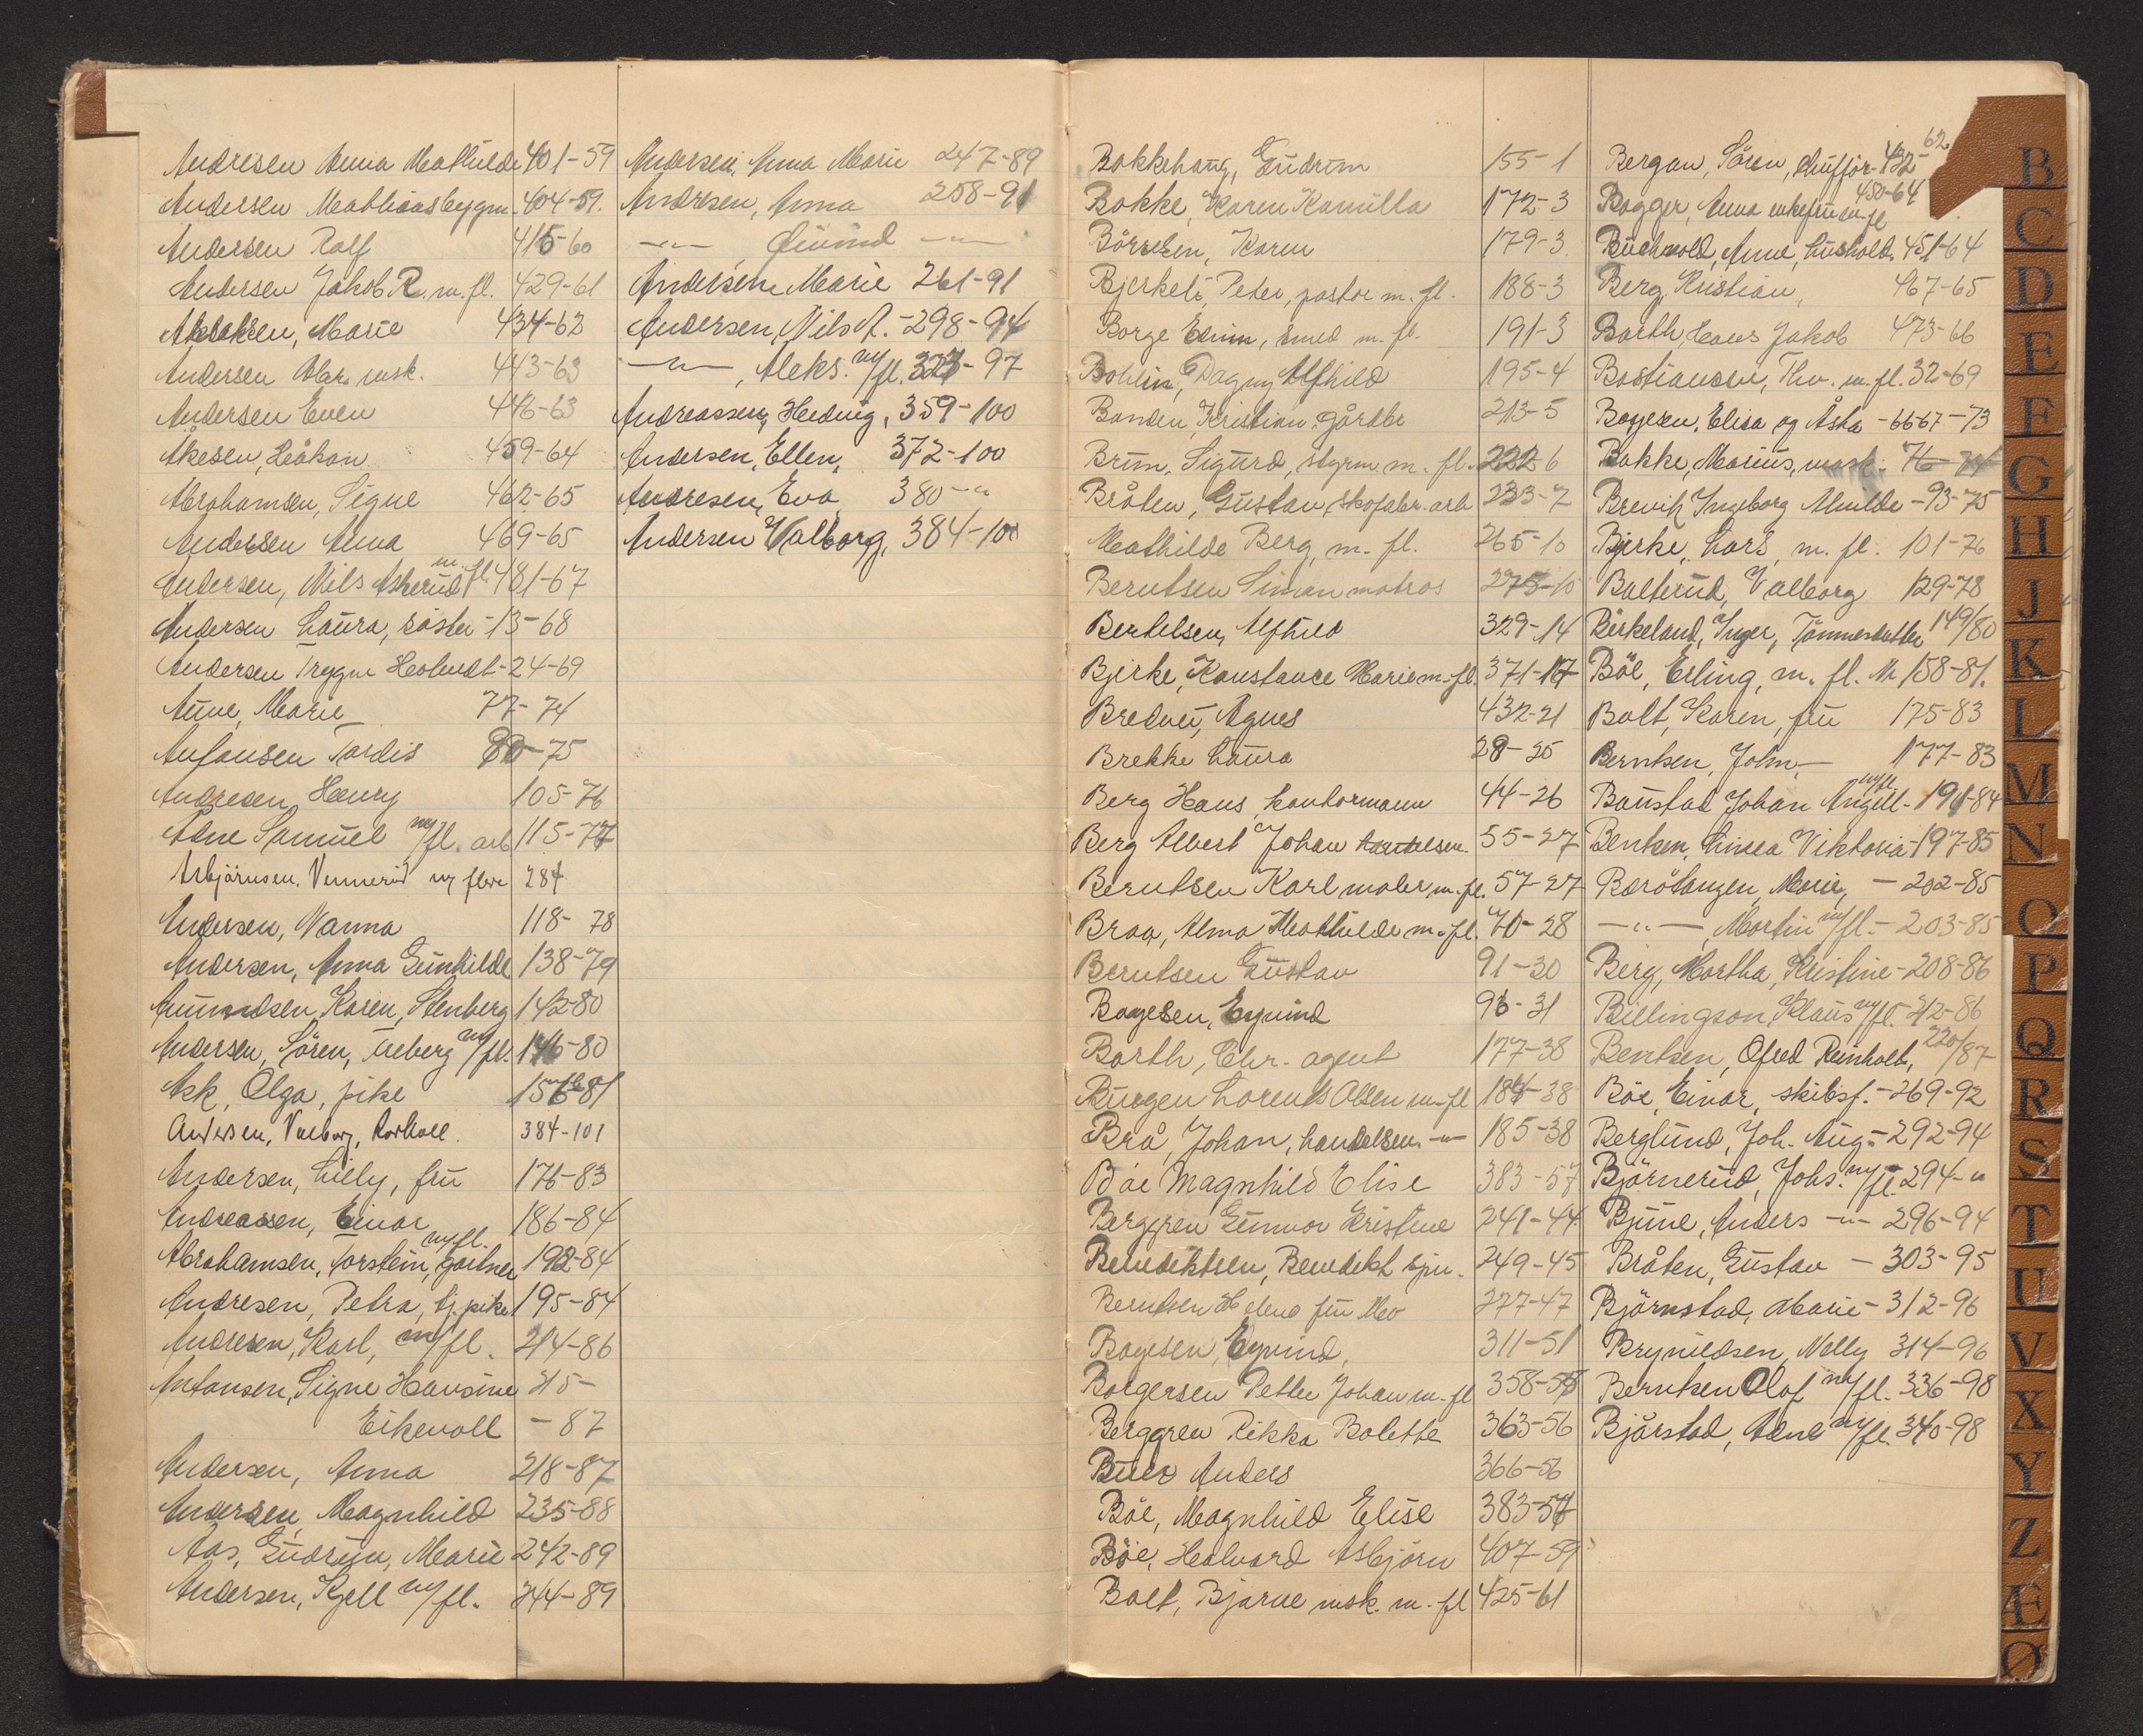 Andresen Anna Mathilde 401-59
Andersen Mathias bygm. 404-59.
Andersen Rolf 415-60
Andersen Jakob R. m. fl. 429-61
Akselsen, Marie 434-62
Andersen Abr. msk. 443-63
Andersen Even 446-63
Åkesen, Håkon 459-64
Abrahamsen, Signe 462-65
Andersen Anna 469-65
Andersen, Nils Askerud m. fl. 481-67
Andersen Laura, söster - 13-68
Andersen Trygve 24-69
Aune, Marie 77-74
Antonsen Tordis 80-75
Andresen Henry 105-76
Adne Samuel m/fl. arb 115-77
Asbjörnsen. Vennerud m flere 284
Andersen, Nanna 118-78
Andersen, Anna Gunhilde 138-79
Amundsen, Karen, Stenberg 142-80
Andersen, Sören, Ueberg m/fl. 146-80
Ask, Olga, pike 157-81
Andersen, Valborg, Rorkoll. 384-101
Andersen, Lilly, fru 176-83
Andreassen, Einar m/fl. 186-84
Abrahamsen, Torstein, gartner 192-84
Andresen, Petra, tj. pike 195-84
Andresen, Karl, m/fl. 214-86
Antonsen, Signe Hansine 215-
Eikevoll - 87
Andersen, Anna 218-87
Andersen, Magnhild 235-88
Aas, Gudrun, Marie 242-89
Andersen, Kjell m/fl. 244-89
Andersen, Anna Marie 247-89
Andresen, Anna 258-91
-"- Eivind -"-
Andersen Marie 261-91
Andersen, Nils A. - 298-94
-"-, Aleks. m/fl. 327-97
Andreassen, Hedvig, 359-100
Andersen, Ellen, 372-100
Andresen, Eva 380-"
Andersen Valborg, 384-100
Bakkehaug, Gudrun 155-1
Bakke, Karen Kamilla 172-3
Börresen, Karen 179-3
Bjerkeli, Peter, pastor m. fl. 188-3
Borge Edvin, smed m. fl. 191-3
Bohlin, Dagny Alfhild 195-4
Banden, Kristian gårdbr 213-5
Brun, Sigurd, styrm m. fl. 222-6
Bråten, Gustav, skofabr. arb 233-7
Mathilde Berg, m. fl. 265-10
Berntsen Simen matros 275-10
Bertelsen, Alfhild 329-14
Bjerke, Konstance Marie m. fl. 371-17
Bredvei, Agnes 432-21
Brekke Laura 28-25
Berg Hans, kontormann 44-26
Berg Albert Johan handelsm. 55-27
Berntsen Karl maler m. fl. 57-27
Braa, Alma Mathilde m. fl. 70-28
Berntsen Gustav 91-30
Bayesen, Eyvind 96-31
Barth, Chr. agent 177-38
Burgen Lorents Olsen m. fl 184-38
Brå, Johan, handelsm -"- 185-38
Böe Magnhild Elise 383-57
Berggren Gunvor Kristine 241-44
Benediktsen, Benedikt 249-45
Berntsen Helene fru 277-47
Bayesen, Eyvind, 311-51
Borgersen Petter Johan m. fl 358-55
Berggren Rikka Bolette 363-56
Buer Anders 366-56
Böe, Magnhild Elise 383-57
Böe, Halvard Asbjörn 407-59
Bolt, Bjarne msk. m. fl 425-61
Bergan, Sören, chufför. 432-62
Bagger, Anna enkefru m. fl 450-64
Buchwold, Anne, hushold. 451-64
Berg Kristian, 467-65
Barth, Hans Jakob 473-66
Bastiansen, Thv. m. fl. 32-69
Boyesen, Elisa og Åsta - 66-67-73
Bakke, Marius, mask. 76-74
Brevik Ingeborg Alvilde - 93-75
Bjerke, Lars, m. fl. 101-76
Balterud, Valborg 129-78
Birkeland, Inger, Tömmersdatter 149/80
Böe, Erling, m. fl. No 158-81.
Bolt, Karen, fru 175-83
Berntsen, John, - 177-83
Baustad Johan Angell m/fl. - 191-84
Bentsen, Linea Viktoria - 197-85
Barötangen, Marie, - 202-85
-"-, Martin m/fl. - 203-85
Berg, Martha, Kristine - 208-86
Billingson, Klaus m/fl. 212-86
Bentsen, Ofred Reinholt, 220/87
Böe, Einar, skibsf. - 269-92
Berglund, Joh. Aug. - 292-94
Björnerud, Johs. m/fl. 294-"
Bjune, Anders -"- 296-94
Bråten, Gustav - 303-95
Björnstad, Marie - 312-96
Brynildsen, Nelly 314-96
Berntsen Olof m/fl. 336-98
Bjårstad, Adne m/fl. 340-98
B
C
D
E
F
G
H
J
K
L
M
N
O
P
Q
R
S
T
U
V
X
Y
Z
Æ
Ø